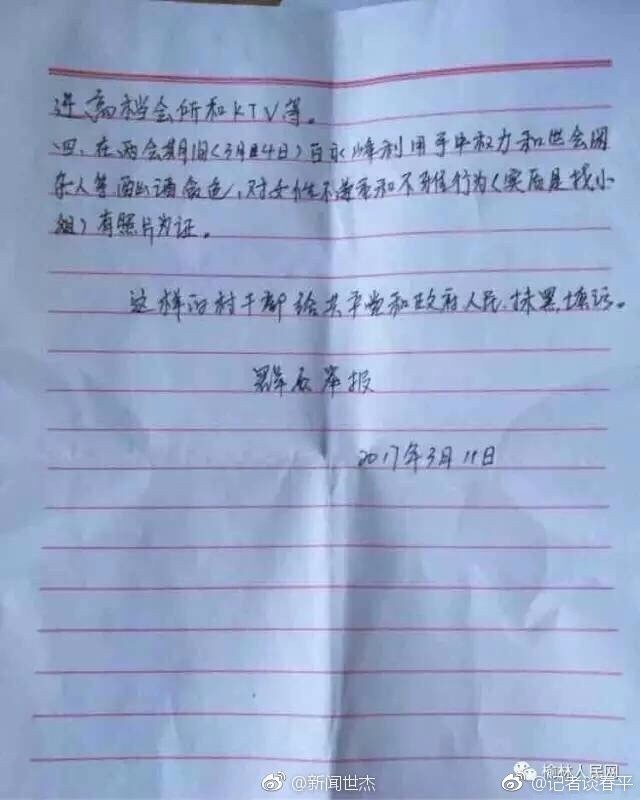 进高档会所和KTV等。
四、在两会期间(3月4日)白永峰利用手中权力和社会闲
杂人等面山酒食色,对女性不尊重和不雅行为(实际是找小
姐)有照片为证。
这样的村干部给共产党和政府人民抹黑,填污。
群众举报
2017年3月11日
榆林人民网
@新闻世杰
@记者谈春平